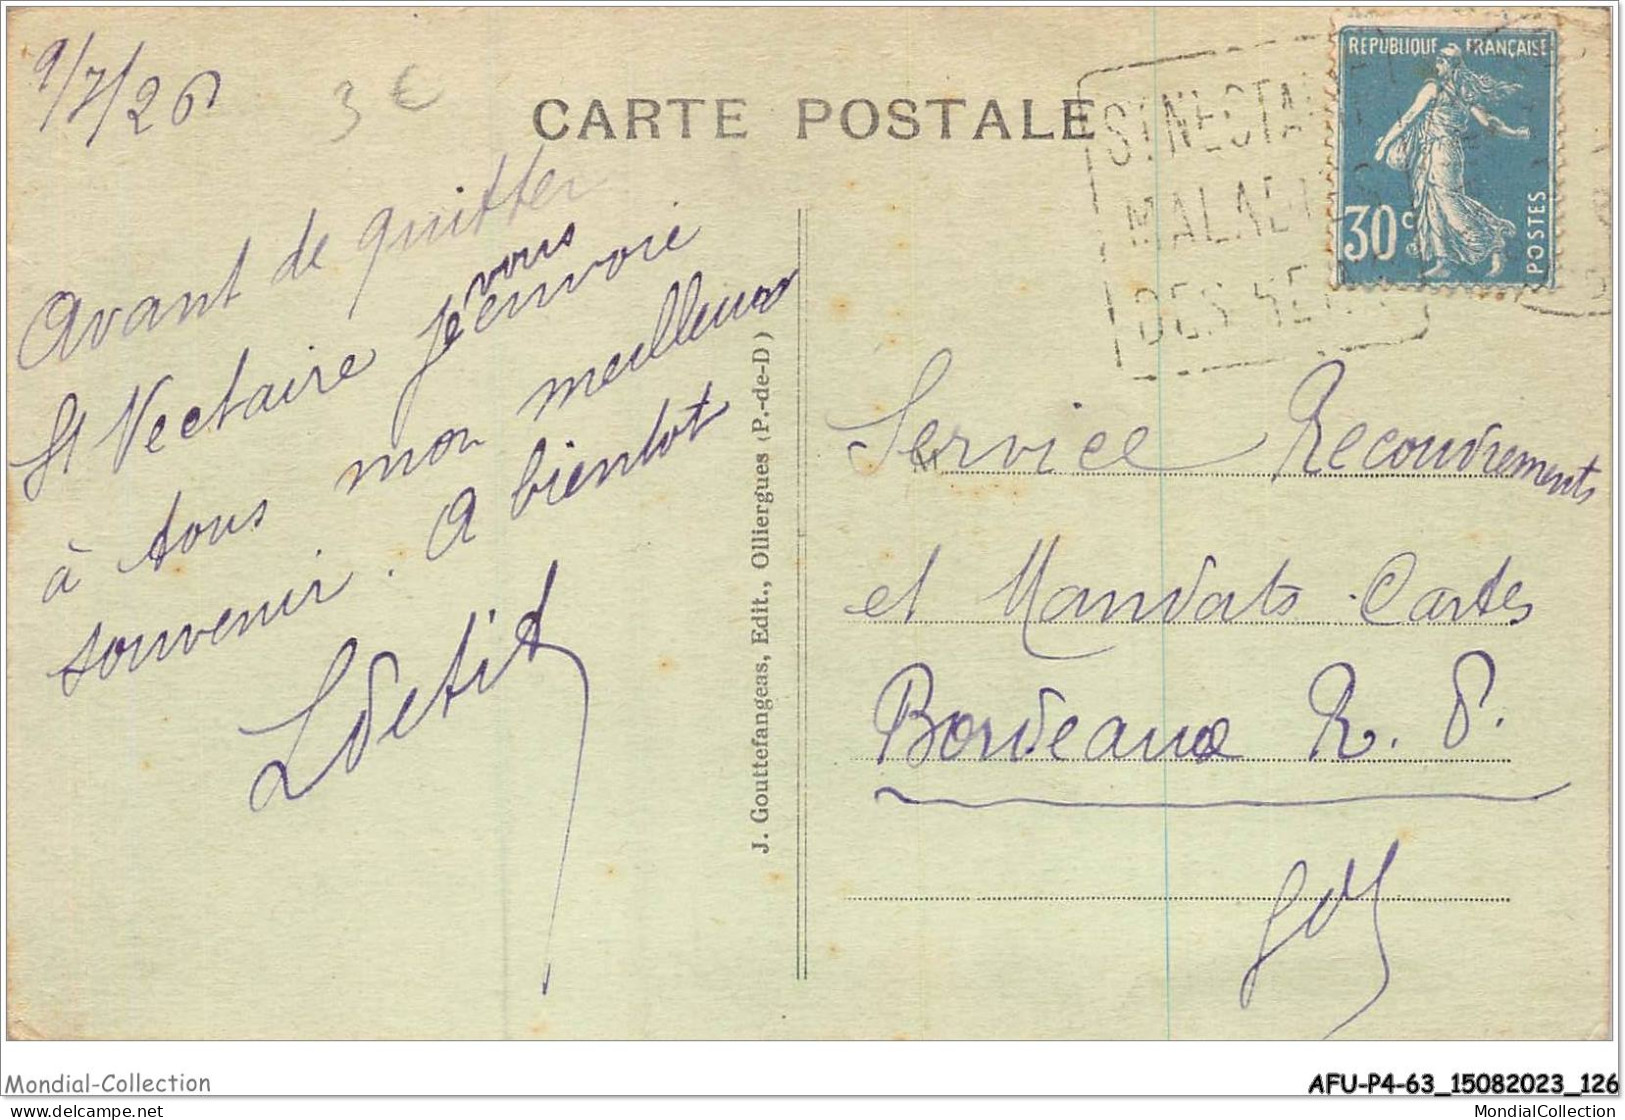 9/7/26
3 €
CARTE POSTALE
ST NECTAI
MALADIES
DES
REPUBLIQUE FRANÇAISE
30 c
POSTES
Avant de quitter
St Nectaire je vous envoie
à tous mon meilleur
souvenir. A bientot
J. Gouttefangeas, Edit., Olliergues (P.-de-D)
Service Recouvrements
et Mandats-Cartes
Bordeaux R. P.
Mondial-Collection
AFU-P4-63_15082023_126
delcampe.net
MondialCollection